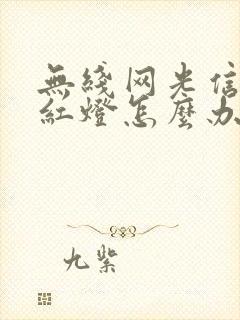 無綫网光信
紅燈怎麼办
九紫